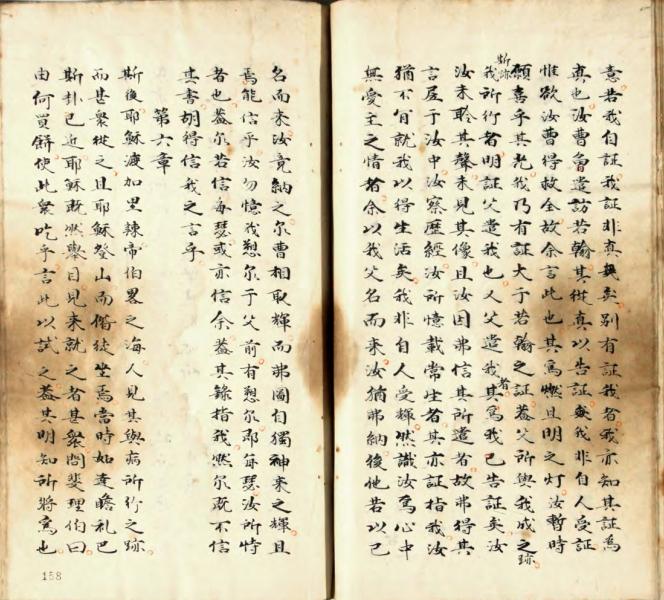 意若我自証我証非真矣别有証我者我亦知其証為
真也汝曹曾遣訪若翰其從真以告証我非自人受証
惟欲汝曹得救全故余言此也其為燃且明之灯汝暫時
願喜乎其光我乃有証大于若翰之証葢父所與我成之跡
斯跡
我所行者明証父遣我也又父遣我者其為我已告証矣汝
汝未聆其聲未見其像且汝因弗信其所遣者故弗得其
言居于汝中汝察歷經汝所憶載常生者其亦証指我汝
猶不肯就我以得生活矣我非自人受輝然識汝為心中
無愛主之情者余以我父名而來汝猶弗納後他若以己
名而来汝竟納之尔曹相取輝而弗圖自獨神来之輝且
焉能信乎汝勿憶我愬尔于父前有愬尔郡每瑟汝所恃
者也葢尔若信每瑟或亦信余葢其錄指我然尔既不信
其書胡得信我之言乎
第六章
斯後耶穌渡加里辣帝伯畧之海人見其與病所行之跡
而甚衆從之且耶穌登山而偕徒坐焉當時如達瞻礼巴
斯卦已近耶穌既然舉目見来就之者甚衆問斐理伯曰
由何買餅使此衆吃乎言此以試之葢其明知所將為也
158